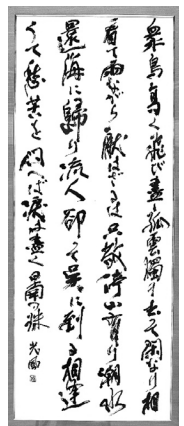 衆鳥高く飛び盡孤雲獨り去て閑なり相
看て両ながら厭はざるは只敬亭山有り潮水
還海に歸り流人却って呉に到る相逢
うて愁苦を問へば涙は盡く日南の珠